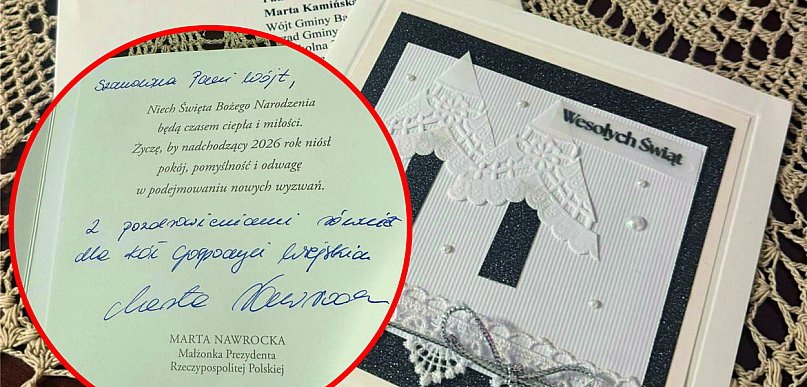 Marta Kamińsk
Wójt Gminy Ba
Szanowna Pani Wójt,
Niech Święta Bożego Narodzenia
będą czasem ciepła i miłości.
Życzę, by nadchodzący 2026 rok niósł
pokój, pomyślność i odwagę
w podejmowaniu nowych wyzwań.
z pozdrowieniami również
dla kół gospodyń wiejskich
Marta Nawrocka
MARTA NAWROCKA
Małżonka Prezydenta
Rzeczypospolitej Polskiej
Wesołych Świąt